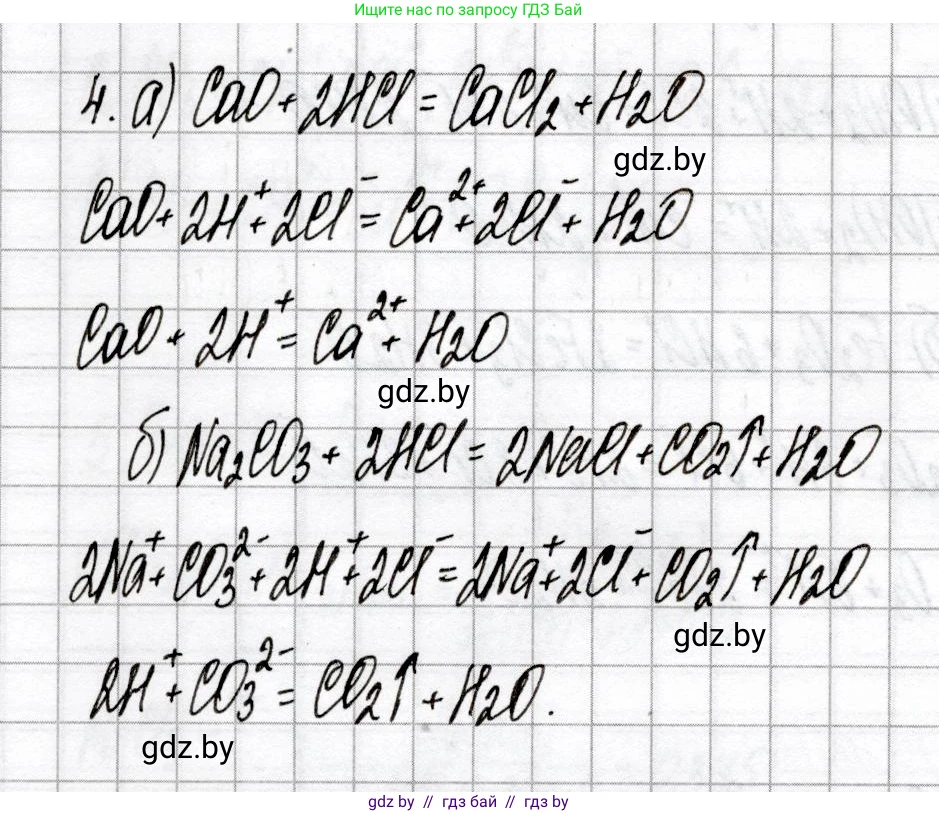 Ищите нас по запросу ГДЗ Бай
4. а) CaO + 2HCl = CaCl₂ + H₂O
gdz.by
CaO + 2H⁺ + 2Cl⁻ = Ca²⁺ + 2Cl⁻ + H₂O
CaO + 2H⁺ = Ca²⁺ + H₂O
gdz.by
б) Na₂CO₃ + 2HCl = 2NaCl + CO₂↑ + H₂O
2Na⁺ + CO₃²⁻ + 2H⁺ + 2Cl⁻ = 2Na⁺ + 2Cl⁻ + CO₂↑ + H₂O
gdz.by
2H⁺ + CO₃²⁻ = CO₂↑ + H₂O.
gdz.by
gdz by // гдз бай // гдз by